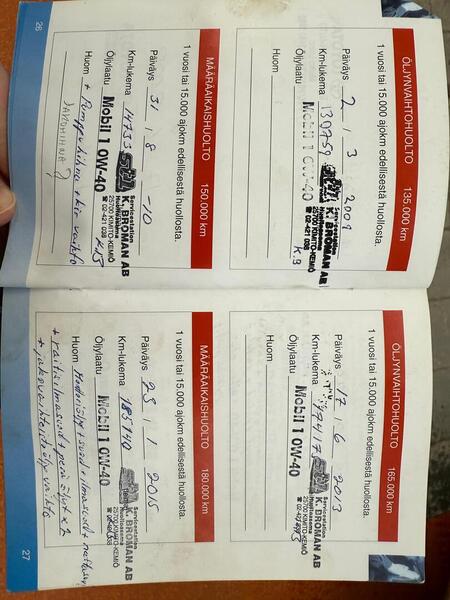 ÖLJYNVAIHTOHUOLTO 135.000 km
1 vuosi tai 15.000 ajokm edellisestä huollosta.
Päiväys 2 / 3 2009
Km-lukema 130759
Öljylaatu Mobil 1 0W-40
Huom
Servicestation
K. BROMAN AB
Huoltoasema
25700 KIMITO-KEMIÖ
☎ 02-421 038
K.B
MÄÄRÄAIKAISHUOLTO 150.000 km
1 vuosi tai 15.000 ajokm edellisestä huollosta.
Päiväys 31 / 8 -10
Km-lukema
Öljylaatu Mobil 1 0W-40
Huom +
Servicestation
K. BROMAN AB
Huoltoasema
25700 KIMITO-KEMIÖ
☎ 02-421 038
JAKOHIHNA?
26
ÖLJYNVAIHTOHUOLTO 165.000 km
1 vuosi tai 15.000 ajokm edellisestä huollosta.
Päiväys 17 / 6 2013
Km-lukema 174175
Öljylaatu Mobil 1 0W-40
Huom
Servicestation
K. BROMAN AB
Huoltoasema
25700 KIMITO-KEMIÖ
MÄÄRÄAIKAISHUOLTO 180.000 km
1 vuosi tai 15.000 ajokm edellisestä huollosta.
Päiväys 23 / 1 2015
Km-lukema 185740
Öljylaatu Mobil 1 0W-40
Huom Moottoriöljy + suod + ilmansuod +
+ raitisilmasuod + perä öljyt x2
+ jakovaihteistoöljy vaihto
Servicestation
K. BROMAN AB
Huoltoasema
25700 KIMITO-KEMIÖ
27